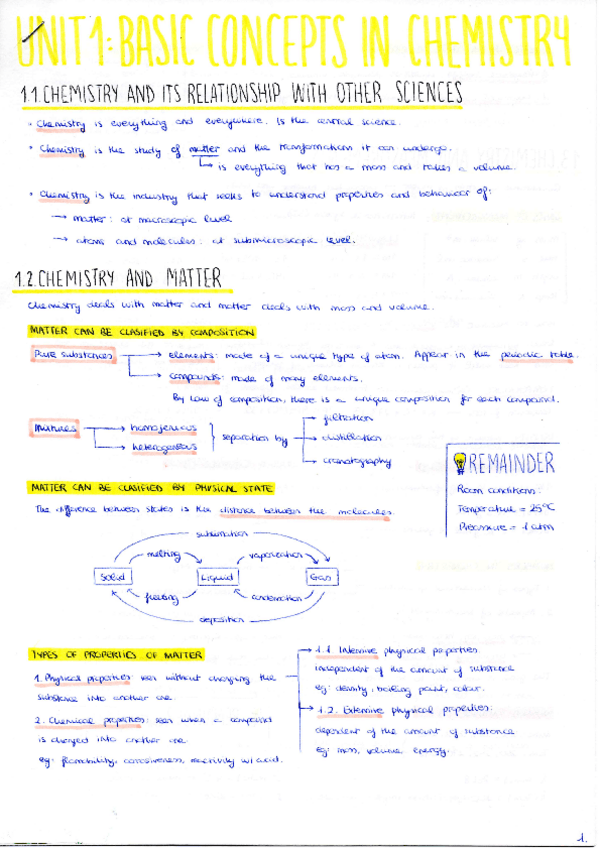 UNIT 1: BASIC CONCEPTS IN CHEMISTRY
1.1. CHEMISTRY AND ITS RELATIONSHIP WITH OTHER SCIENCES
• Chemistry is everything and everywhere. Is the central science.
• Chemistry is the study of matter and the transformations it can undergo.
↳ is everything that has a mass and takes a volume.
• Chemistry is the industry that seeks to understand properties and behaviour of:
→ matter: at macroscopic level
→ atoms and molecules: at submicroscopic level.
1.2. CHEMISTRY AND MATTER
Chemistry deals with matter and matter deals with mass and volume.
MATTER CAN BE CLASIFIED BY COMPOSITION
Pure substances → elements: made of a unique type of atom. Appear in the periodic table.
→ compounds: made of many elements.
By law of composition, there is a unique composition for each compound.
Mixtures → homogeneous
→ heterogeneous
separation by
→ filtration
→ distillation
→ cromatography
REMAINDER
Room conditions:
Temperature = 25°C
Pressure = 1 atm
MATTER CAN BE CLASIFIED BY PHYSICAL STATE
The difference between states is the distance between the molecules.
sublimation
melting vaporization
Solid Liquid Gas
freezing condensation
deposition
TYPES OF PROPERTIES OF MATTER
1. Physical properties: seen without changing the
substance into another one
2. Chemical properties: seen when a compound
is changed into another one
eg: flammability, corrosiveness, reactivity w/ acid.
→ 1.1 Intensive physical properties
independent of the amount of substance
eg: density, boiling point, colour.
→ 1.2. Extensive physical properties:
dependent of the amount of substance
eg: mass, volume, energy.
1.